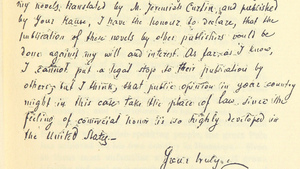 my novels, translated by M. Jeremiah Curtin, and published
by Your House, I have the honour to declare, that the
publication of these novels by other publishers would be
done against my will and interest. As far as I know,
I cannot put a legal stop to their publication by
others, but I think, that public opinion in your country
might in this case take the place of law, since the
feeling of comercial honor is so highly developed in
the United States.—
Yours truly